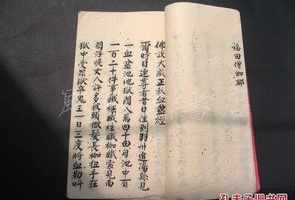 佛說大藏正教血盆經
爾時目連尊者昔日往到羽州追陽縣見
一血盆池地獄闊八萬四千由旬池中有
一百二十件事鐵樑鐵柱鐵枷鐵索見南
閻浮提女人許多被頭散髮長枷杻手在
獄中受罪獄卒鬼王一日三度將血勒叫
孔夫子旧书网